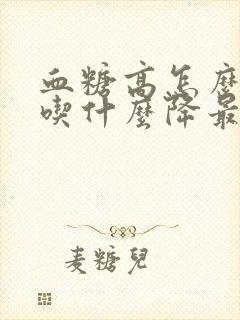 血糖高怎麼
喫什麼降最
麦糖兒